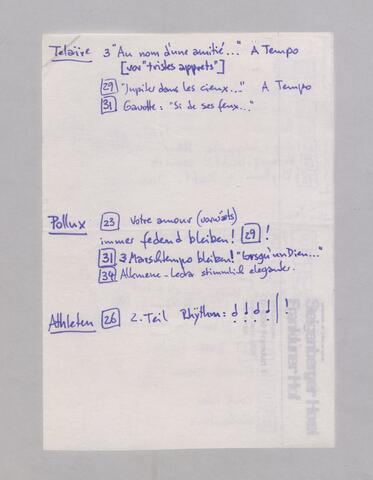 Telaïre 3 "Au nom d'une amitié..." A Tempo
[vor "tristes apprets"]
29 "Jupiter dans les cieux..." A Tempo
31 Gavotte: "Si de ses feux..."
Pollux 23 Votre amour (vorwärts)
immer federnd bleiben! 29 !
31 3 Marschtempo bleiben! "Lorsqu'un Dieu..."
34 Alkmene-Leda stimmlich eleganter.
Athleten 26 2. Teil Rhythm:
Steigenberger Hotel
Frankfurter Hof